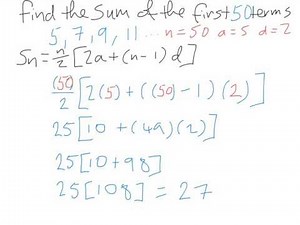 find the sum of the first 50 terms
5, 7, 9, 11 ... n=50 a=5 d=2
Sn=n/2[2a+(n-1)d]
(50)/2[2(5)+((50)-1)(2)]
25[10+(49)(2)]
25[10+98]
25[108] = 27